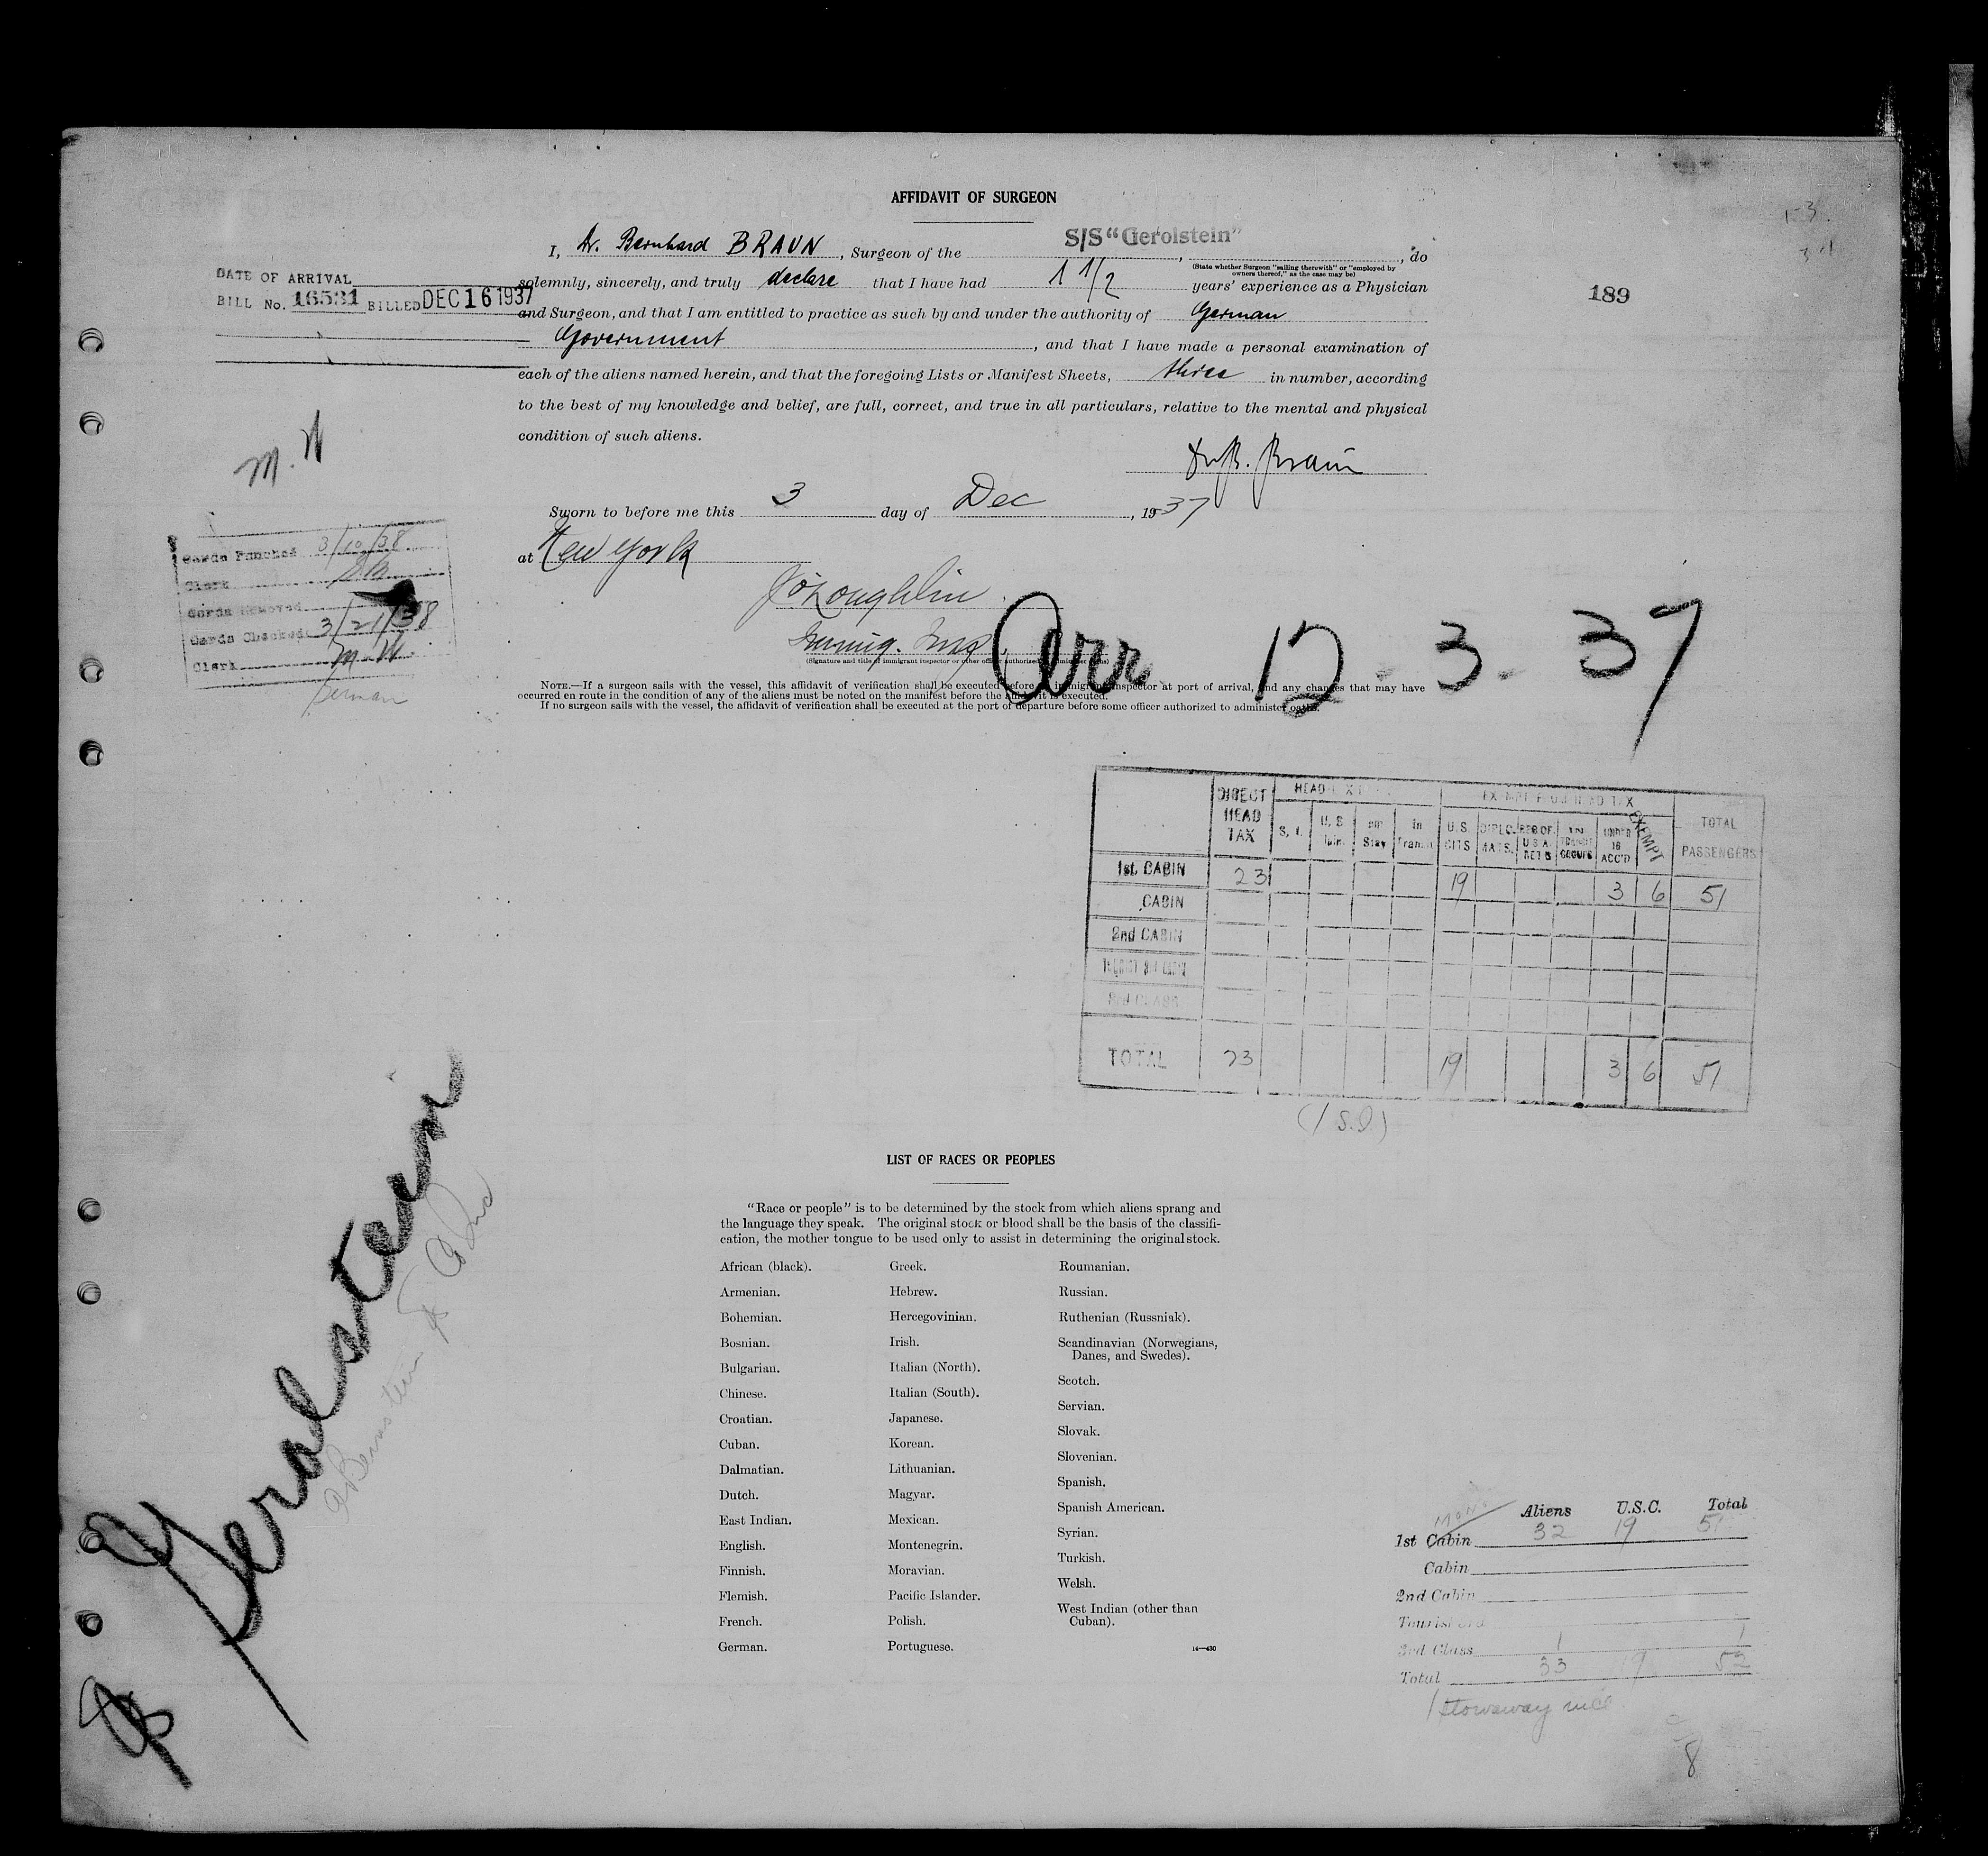 AFFIDAVIT OF SURGEON
I, Dr. Bernhard BRAUN, Surgeon of the S/S "Gerolstein", do
(State whether Surgeon "sailing therewith" or "employed by owners thereof," as the case may be)
solemnly, sincerely, and truly declare that I have had 1 1/2 years' experience as a Physician
and Surgeon, and that I am entitled to practice as such by and under the authority of German
Government, and that I have made a personal examination of
each of the aliens named herein, and that the foregoing Lists or Manifest Sheets, three in number, according
to the best of my knowledge and belief, are full, correct, and true in all particulars, relative to the mental and physical
condition of such aliens.
Dr. B. Braun
Sworn to before me this 3 day of Dec, 1937
at New York
J O'Loughlin
Immig. Insp.
(Signature and title of immigrant inspector or other officer authorized to administer oaths)
NOTE.—If a surgeon sails with the vessel, this affidavit of verification shall be executed before an immigrant inspector at port of arrival, and any changes that may have
occurred en route in the condition of any of the aliens must be noted on the manifest before the affidavit is executed.
If no surgeon sails with the vessel, the affidavit of verification shall be executed at the port of departure before some officer authorized to administer oaths.
DATE OF ARRIVAL
BILL No. 16531 BILLED DEC 16 1937
189
M. W
Cards Punched 3/10/38
Clerk
Cards Removed
Cards Checked 3/21/38
Clerk M. W.
German
Arr. 12-3-37
DIRECT HEAD TAX
EXEMPT FROM HEAD TAX
TOTAL PASSENGERS
U.S. CITS
DIPLOMATS.
UNDER 16 ACC'D
EXEMPT
1st. CABIN 23 19 3 6 51
CABIN
2nd CABIN
3rd CLASS
TOTAL 23 19 3 6 51
(1 S.I.)
Gerolstein
LIST OF RACES OR PEOPLES
"Race or people" is to be determined by the stock from which aliens sprang and
the language they speak. The original stock or blood shall be the basis of the classifi-
cation, the mother tongue to be used only to assist in determining the original stock.
African (black).
Armenian.
Bohemian.
Bosnian.
Bulgarian.
Chinese.
Croatian.
Cuban.
Dalmatian.
Dutch.
East Indian.
English.
Finnish.
Flemish.
French.
German.
Greek.
Hebrew.
Hercegovinian.
Irish.
Italian (North).
Italian (South).
Japanese.
Korean.
Lithuanian.
Magyar.
Mexican.
Montenegrin.
Moravian.
Pacific Islander.
Polish.
Portuguese.
Roumanian.
Russian.
Ruthenian (Russniak).
Scandinavian (Norwegians,
Danes, and Swedes).
Scotch.
Servian.
Slovak.
Slovenian.
Spanish.
Spanish American.
Syrian.
Turkish.
Welsh.
West Indian (other than
Cuban).
14—430
Aliens U.S.C. Total
1st Cabin 32 19 51
Cabin
2nd Cabin
Tourist 3rd
3rd Class 1 1
Total 33 19 52
1 Stowaway
8